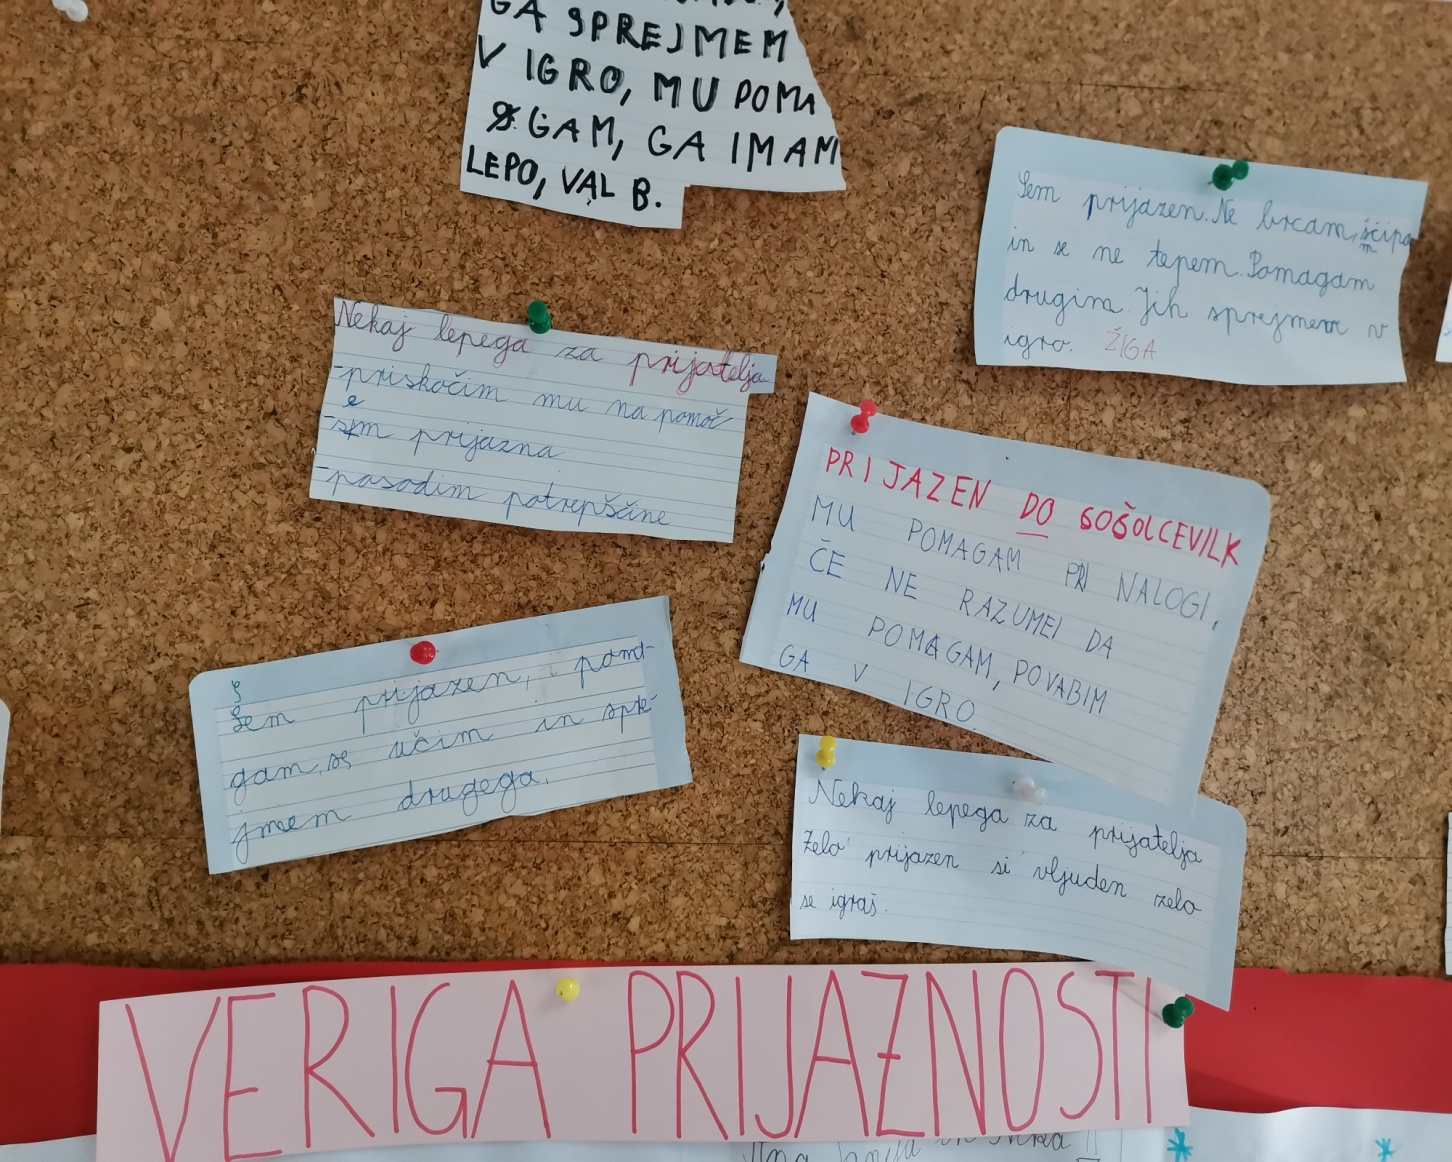 GA SPREJMEM
V IGRO, MU POMA
GAM, GA IMAM
LEPO, VAL B.
Sem prijazen. Ne brcam, ščipam
in se ne tepem. Pomagam
drugim. Jih sprejmem v
igro. ŽIGA
Nekaj lepega za prijatelja
-priskočim mu na pomoč
-sem prijazna
-posodim potrepščine
PRIJAZEN DO SOŠOLCEVILK
MU POMAGAM PRI NALOGI,
ČE NE RAZUMEI DA
MU POMAGAM, POVABIM
GA V IGRO
Sem prijazen, poma-
gam, se učim in spre-
jmem drugega.
Nekaj lepega za prijatelja
Zelo prijazen si vljuden zelo
se igraš.
VERIGA PRIJAZNOSTI